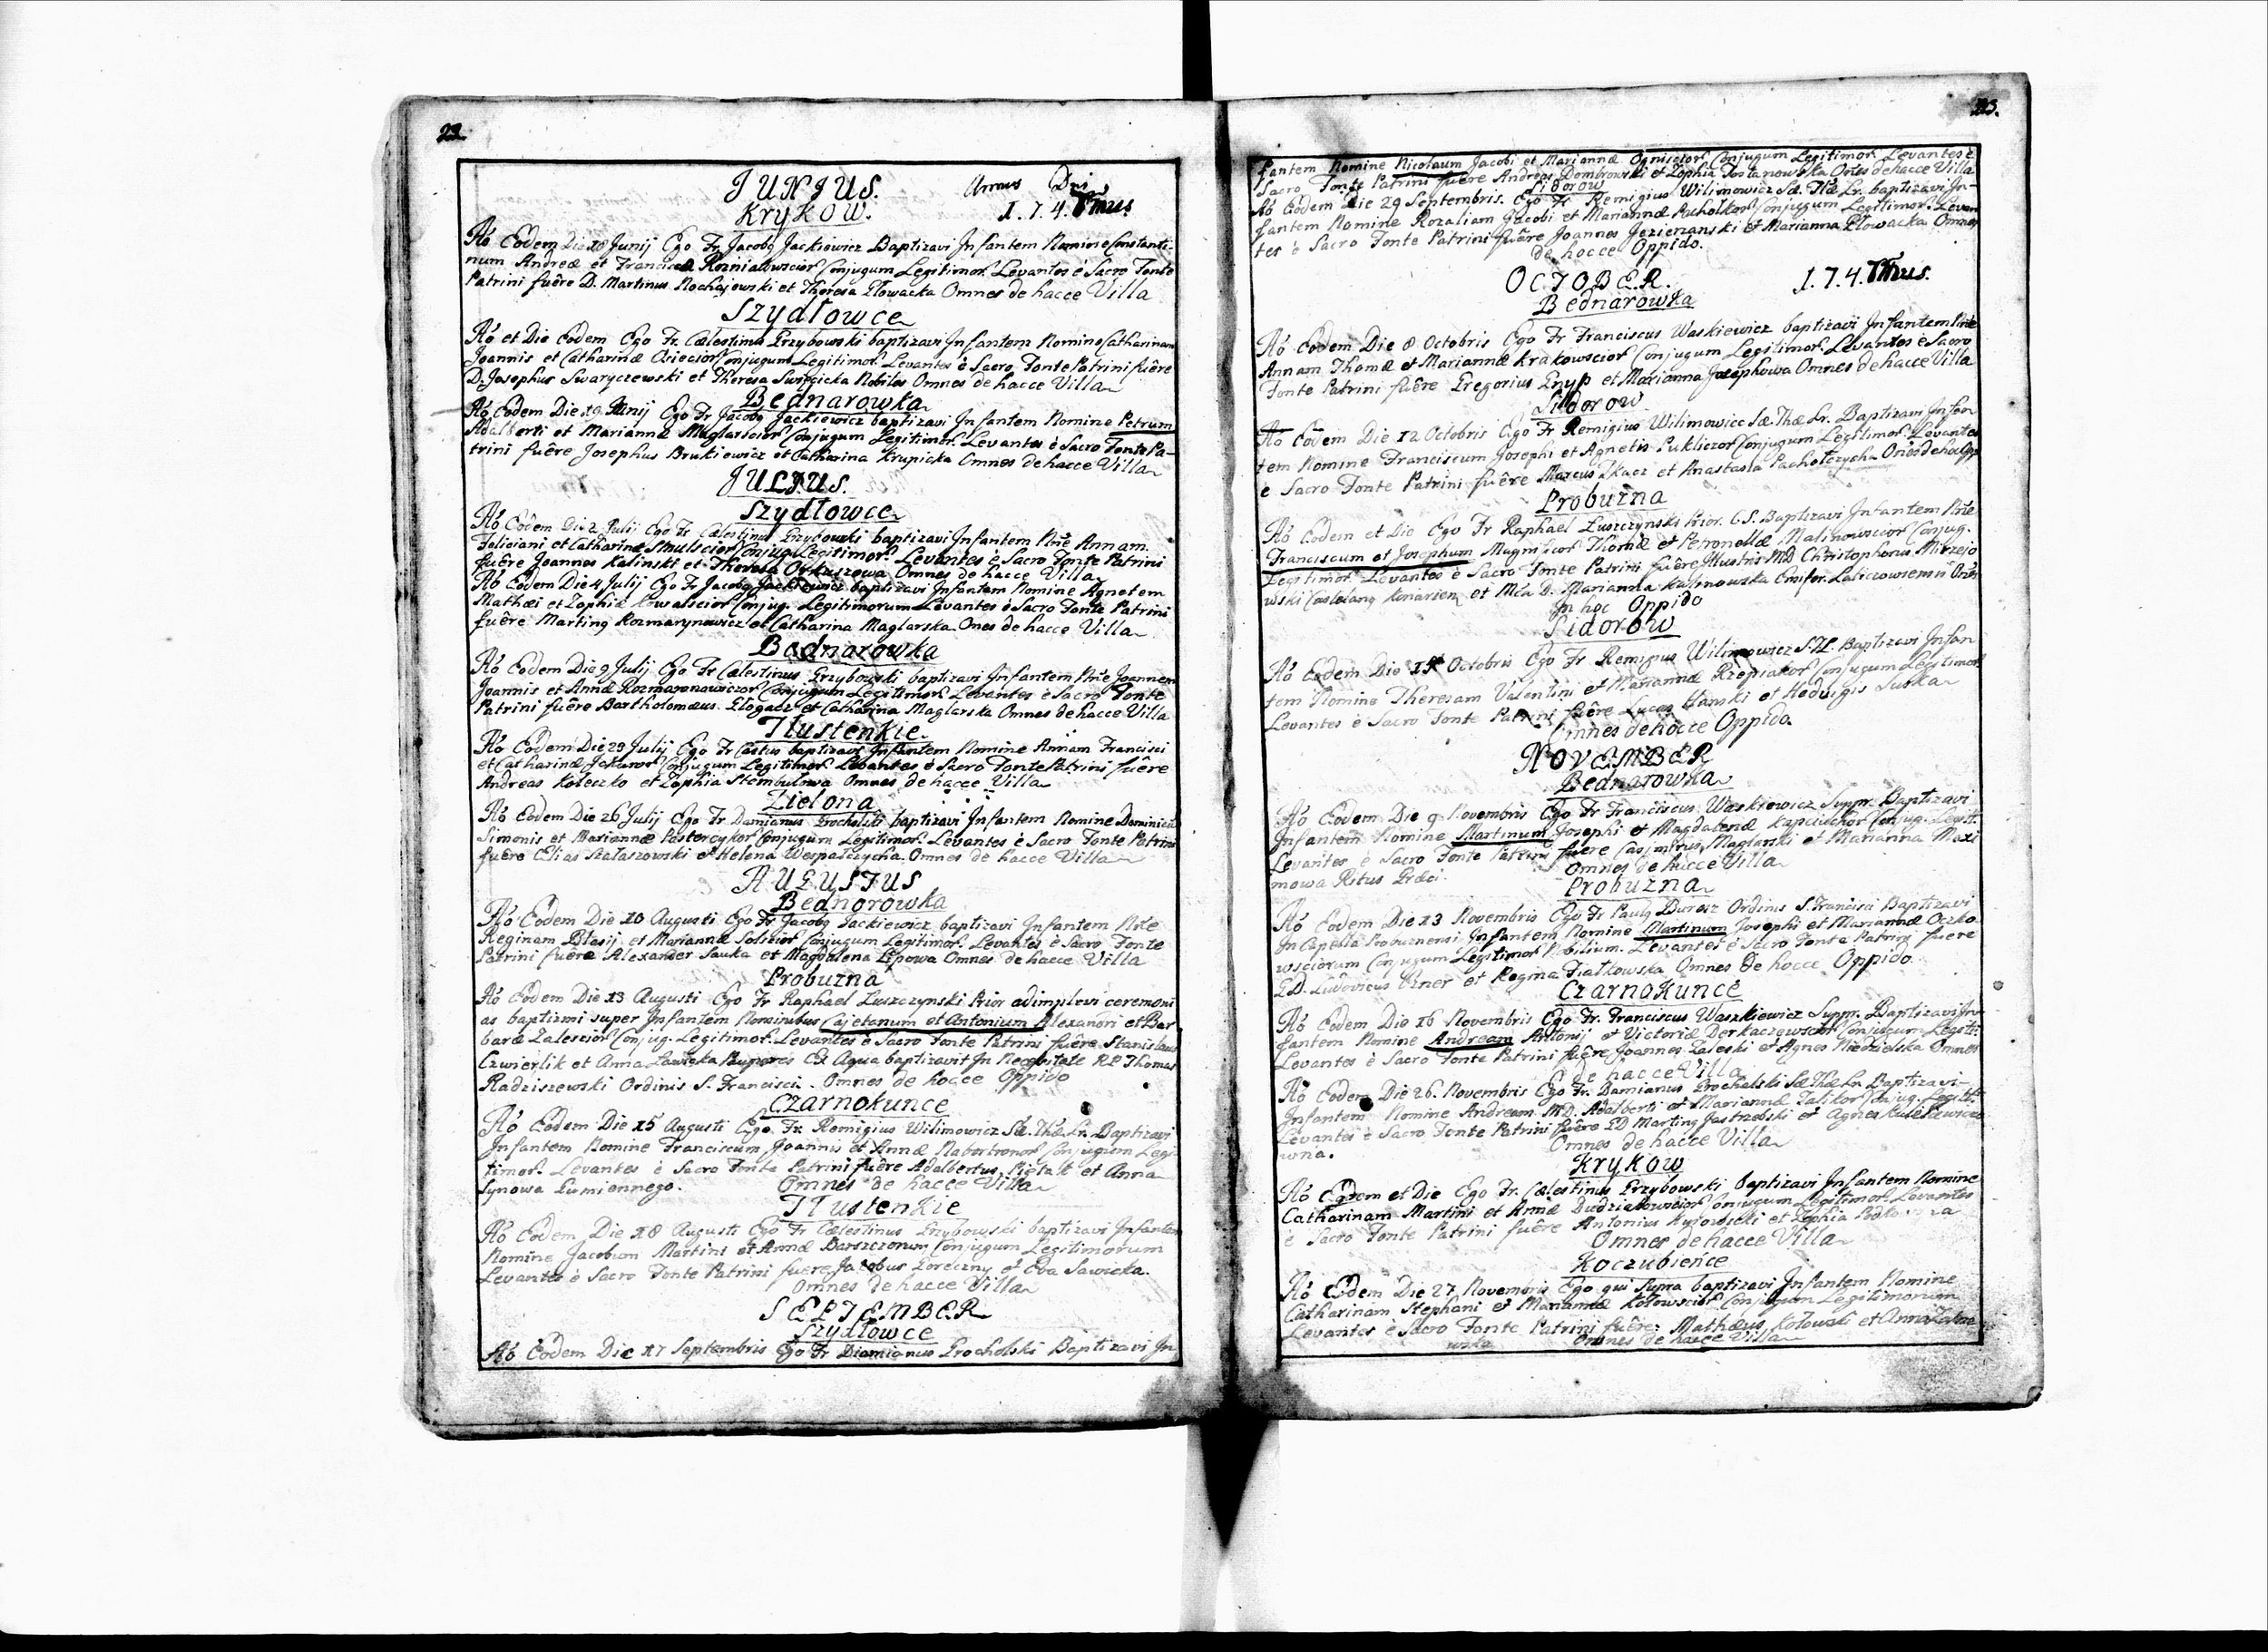 22.
JUNIUS. Annus Dni
Krykow. 1.7.4.
Ao Eodem Die 18 Junij Ego Fr Jacobq Jackiewicz Baptizavi Infantem Nomine Constanti-
num Andreæ et Franciscæ Conjugum Legitimor. Levantes è Sacro Fonte
Patrini fuêre D. Martinus Rochajowski et Theresa Głowacka Omnes de hacce Villa
Szydłowce
Ao et Die Eodem Ego Fr. Cælestinus Grzybowski baptizavi Infantem Nomine Catharinam
Joannis et Catharinæ Conjugum Legitimor. Levantes è Sacro Fonte Patrini fuêre
D. Josephus Swaryczewski et Theresa Swięcicka Nobiles Omnes de hacce Villa
Bednarowka
Ao Eodem Die 19 Junij Ego Fr Jacobq Jackiewicz baptizavi Infantem Nomine Petrum
Adalberti et Mariannæ Maglarscior Conjugum Legitimor. Levantes è Sacro Fonte Pa-
trini fuêre Josephus Brukiewicz et Catharina Krupicka Omnes de hacce Villa
JULIUS.
Szydłowce
Ao Eodem Die 2 Julij Ego Fr Cælestinus Grzybowski baptizavi Infantem Nne Annam
Feliciani et Catharinæ Conjug Legitimor. Levantes è Sacro Fonte Patrini
fuêre Joannes Kalinski et Theresa Omnes de hacce Villa
Ao Eodem Die 4 Julij Ego Fr Jacobq Jackiewicz baptizavi Infantem Nomine Agnetem
Mathæi et Zophiæ Kowalscior Conjug. Legitimorum Levantes è Sacro Fonte Patrini
fuêre Martinq Rozmarynowicz et Catharina Maglarska Ones de hacce Villa
Bednarowka
Ao Eodem Die 9 Julij Ego Fr Cælestinus Grzybowski baptizavi Infantem Nne Joannem
Joannis et Annæ Conjugum Legitimor. Levantes è Sacro Fonte
Patrini fuêre Bartholomæus Głogacz et Catharina Maglarska Omnes de hacce Villa
Tłustenkie.
Ao Eodem Die 23 Julij Ego Fr Castus baptizavi Infantem Nomine Annam Francisci
et Catharinæ Conjugum Legitimor. Levantes è Sacro Fonte Patrini fuêre
Andreas Koleczko et Zophia Stembulowa Omnes de hacce Villa
Zielona
Ao Eodem Die 26 Julij Ego Fr Damianus Grocholski baptizavi Infantem Nomine
Simonis et Mariannæ Conjugum Legitimor. Levantes è Sacro Fonte Patrini
fuêre Elias Szałaszowski et Helena Omnes de hacce Villa
AUGUSTUS
Bednorowka
Ao Eodem Die 10 Augusti Ego Fr Jacobq Jackiewicz baptizavi Infantem Nne
Reginam Błasij et Mariannæ Conjugum Legitimor. Levantes è Sacro Fonte
Patrini fuêre Alexander Sauka et Magdalena Lipowa Omnes de hacce Villa
Probuzna
Ao Eodem Die 13 Augusti Ego Fr Raphael Luszczynski Prior adimplevi ceremoni
as baptismi super Infantem Nominibus Cajetanum et Antonium Alexandri et Bar
baræ Zalescior Conjug. Legitimor. Levantes è Sacro Fonte Patrini fuêre Stanislaus
Czwierlik et Anna Pauperes Ex Aqua baptizavit In Necessitate RP Thomas
Radziszewski Ordinis S. Francisci. Omnes de hocce Oppido
Czarnokunce
Ao Eodem Die 15 Augusti Ego Fr. Remigius Wilimowicz Sæ. Thæ Lr. Baptizavi
Infantem Nomine Franciscum Joannis et Annæ Conjugum Legi
timor. Levantes è Sacro Fonte Patrini fuêre Adalbertus et Anna
Synowa Gumiennego. Omnes de hacce Villa
Tłustenkie
Ao Eodem Die 18 Augusti Ego Fr Cælestinus Grzybowski baptizavi Infantem
Nomine Jacobum Martini et Annæ Barszczorum Conjugum Legitimorum
Levantes è Sacro Fonte Patrini fuêre Jacobus Poreczny et Eva Sawicka.
Omnes de hacce Villa
SEPTEMBER
Szydłowce
Ao Eodem Die 17 Septembris Ego Fr Damianus Grocholski Baptizavi In
23.
fantem Nomine Nicolaum Jacobi et Mariannæ Conjugum Legitimor. Levantes è
Sacro Fonte Patrini fuêre Andreas Dombrowski et Zophia Ones de hacce Villa
Sidorow
Ao Eodem Die 29 Septembris. Ego Fr Remigius Wilimowicz Sæ. Thæ Lr. baptizavi In-
fantem Nomine Rozaliam Jacobi et Mariannæ Conjugum Legitimor. Levan
tes è Sacro Fonte Patrini fuêre Joannes Jezierzanski et Marianna Głowacka Omnes
de hocce Oppido.
OCTOBER. 1.7.4.
Bednarowka
Ao Eodem Die 8 Octobris Ego Fr Franciscus Waskiewicz baptizavi Infantem Nne
Annam Thomæ et Mariannæ Krakowscior Conjugum Legitimor. Levantes è Sacro
Fonte Patrini fuêre Gregorius Gnyp et Marianna Josephowa Omnes de hacce Villa
Sidorow
Ao Eodem Die 12 Octobris Ego Fr Remigius Wilimowicz Sæ. Thæ Lr. Baptizavi Infan
tem Nomine Franciscum Josephi et Agnetis Conjugum Legitimor. Levantes
e Sacro Fonte Patrini fuêre Marcus Tkacz et Anastasia Pachołczycha
Probuzna
Ao Eodem et Die Ego Fr Raphael Luszczynski Prior. Baptizavi Infantem Nne
Franciscum et Josephum Magnificor Thomæ et Petronellæ Malinowscior Conjug.
Legitimor. Levantes è Sacro Fonte Patrini fuêre Illustris MD Christophorus Mirzejo
wski et Mca D. Marianna Kalinowska
In hoc Oppido
Sidorow
Ao Eodem Die Octobris Ego Fr Remigius Wilimowicz Baptizavi Infan
tem Nomine Theresam Valentini et Mariannæ Conjugum Legitimor
Levantes è Sacro Fonte Patrini fuêre Lucas et Hedwigis
Omnes de hocce Oppido.
NOVEMBER
Bednarowka
Ao Eodem Die 9 Novembris Ego Fr Franciscus Waskiewicz Suppr. Baptizavi
Infantem Nomine Martinum Josephi et Magdalenæ Conjug. Legit.
Levantes è Sacro Fonte Patrini fuêre Casimirus Maglarski et Marianna Maxi
mowa Ritus Græci. Omnes de hacce Villa
Probuzna
Ao Eodem Die 13 Novembris Ego Fr Paulq Ordinis S. Francisci Baptizavi
In Capella Probuznensi Infantem Nomine Martinum Josephi et Mariannæ Oczko
wsciorum Conjugum Legitimor Nobilium. Levantes è Sacro Fonte Patrini fuêre
GD. Ludovicus et Regina Fiałkowska Omnes de hocce Oppido
Czarnokunce
Ao Eodem Die 16 Novembris Ego Fr. Franciscus Waszkiewicz Suppr. Baptizavi In
fantem Nomine Andream Antonij et Victoriæ Derkaczewscior Conjugum Legiti.
Levantes è Sacro Fonte Patrini fuêre Joannes Zaleski et Agnes Niedzielska Omnes
de hacce Villa
Ao Eodem Die 26. Novembris Ego Fr. Damianus Grocholski Sæ Thæ Lr. Baptizavi
Infantem Nomine Andream MD. Adalberti et Mariannæ Conjug. Legiti.
Levantes è Sacro Fonte Patrini fuêre GD Martinq Jastrzebski et Agnes
wna. Omnes de hacce Villa
Krykow
Ao Eodem et Die Ego Fr. Cælestinus Grzybowski baptizavi Infantem Nomine
Catharinam Martini et Annæ Conjugum Legitimor. Levantes
è Sacro Fonte Patrini fuêre Antonius et Zophia
Omnes de hacce Villa
Koczubieńce
Ao Eodem Die 27 Novembris Ego qui Supra baptizavi Infantem Nomine
Catharinam Stephani et Mariannæ Kotowscior Conjugum Legitimorum
Levantes è Sacro Fonte Patrini fuêre: Mathæus Kotowski et Anna
wska Omnes de hacce Villa